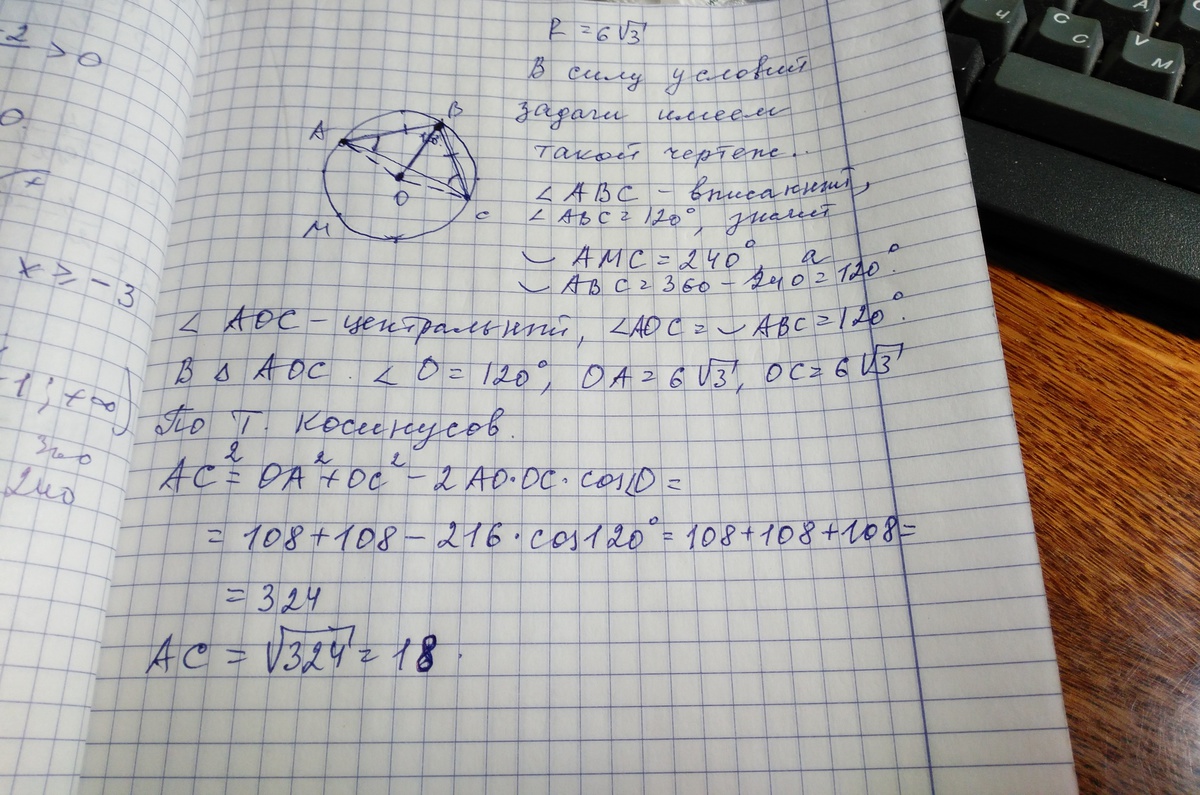 -2 > 0
0.
x ≥ -3
-1; +∞)
360
240
R = 6√3
В силу условий
задачи имеем
такой чертеж.
A
B
O
C
M
∠ ABC - вписанный,
∠ ABC = 120°, значит
◡ AMC = 240°, а
◡ ABC = 360 - 240 = 120°.
∠ AOC - центральный, ∠AOC = ◡ ABC = 120°.
В △ AOC. ∠ O = 120°, OA = 6√3, OC = 6√3
По Т. косинусов.
AC² = OA² + OC² - 2AO·OC·cosO =
= 108 + 108 - 216 · cos120° = 108 + 108 + 108 =
= 324
AC = √324 = 18.
C
C
M